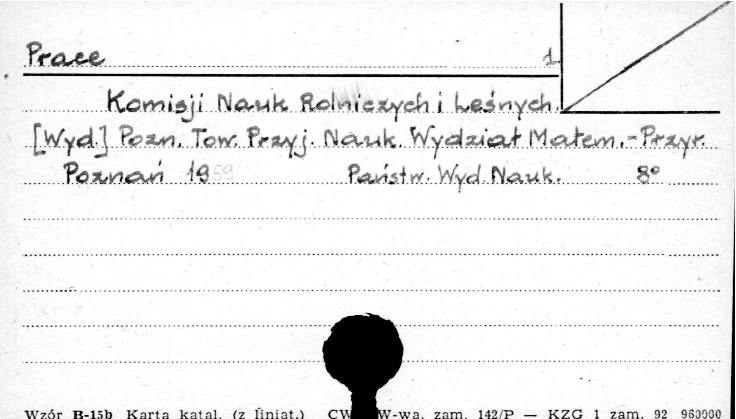 Prace 1
Komisji Nauk Rolniczych i Leśnych.
[Wyd.] Pozn. Tow. Przyj. Nauk. Wydział Matem.-Przyr.
Poznań 1959 Państw. Wyd. Nauk. 8°
Wzór B-15b Karta katal. (z liniat.) CW W-wa, zam. 142/P — KZG 1 zam. 92 960000